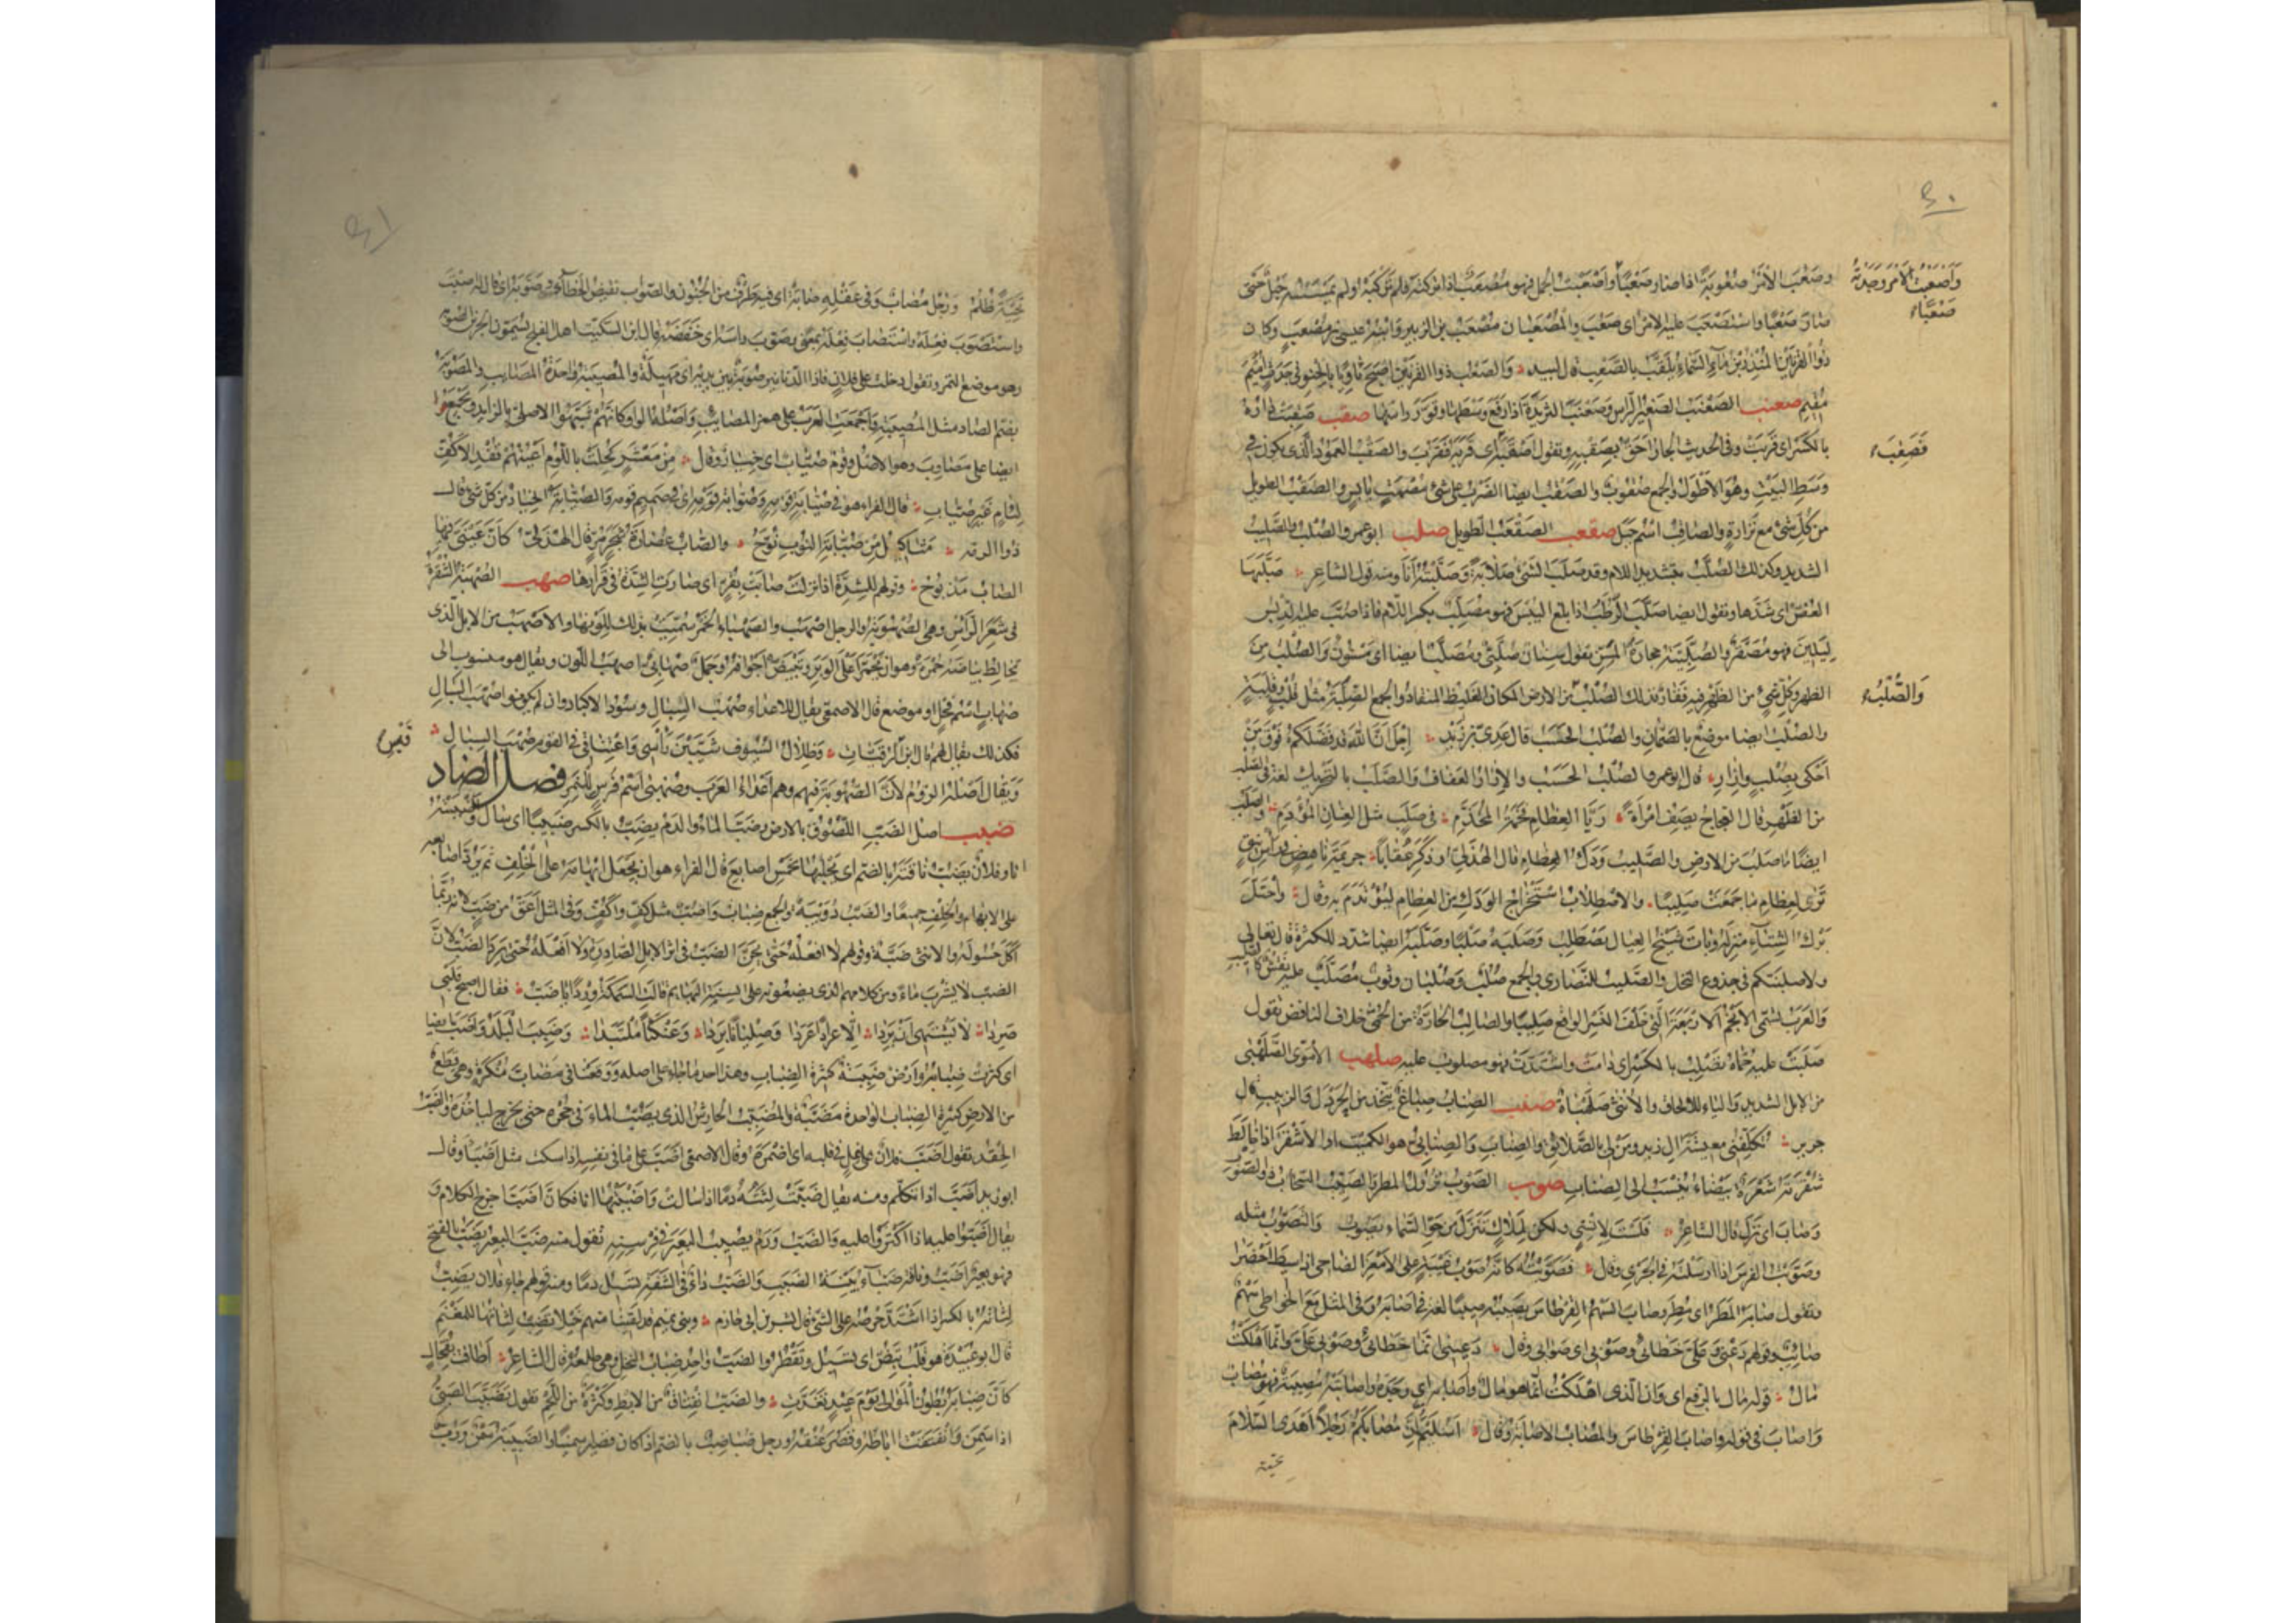 ٤٠
وصَعُبَ الأمْرُ صُعُوبَةً اذا صار صَعْبًا وأصْعَبْتُ الجمل فهو مُصْعَبٌ اذا تركته فلم تركبه ولم يمسسه حبل حتى
وَأَصْعَبْتُ الأَمْرَ وَجَدْتُهُ
صَعْبًا
صار صَعْبًا واستصعب عليه الامر اى صَعُبَ والمُصْعَبان مُصْعَبُ بن الزبير وابنه عيسى بن مصعب وكان
ذو القرنين المنذر بن ماء السماء يلقب بالصعب قال لبيد والصَّعْبُ ذو القرنين اصبح ثاويا بالحنو فى جدث اميم
مقيم صعنب الصَّعْنَبُ الصغير الرأس وصَعْنَبَ الثريدة اذا رفع وسطها وقور رأسها صقب صَقِبَتْ داره
بالكسر اى قربت وفى الحديث الجار احق بصقبه وتقول أصقبه اى قربه فقرب والصقب العمود الذى يكون فى
فَصَقِبَ
وسط البيت وهو الاطول والجمع صقوب والصقب ايضا الضرب على شئ مصمت يابس والصقب الطويل
من كل شئ مع ترارة والصاقب اسم جبل صقعب الصَّقْعَبُ الطويل صلب ابو عمرو الصُّلْبُ والصليب
الشديد وكذلك الصُّلَّبُ بتشديد اللام وقد صلب الشئ صلابة وصلبته انا ومنه قول الشاعر صلبها
العُضّ اى شدها وتقول ايضا صلب الرطب اذا بلغ اليبس فهو مصلب بكسر اللام فاذا صب عليه الدبس
ليلين فهو مصقر والصلبية حجارة المسن تقول سنان صلبى ومصلب ايضا اى مسنون والصلب من
الظهر وكل شئ من الظهر فيه فقار فذلك الصلب والصلب من الارض المكان الغليظ المنقاد والجمع الصلبة مثل قلب وقلبة
وَالصُّلْبُ
والصلب ايضا موضع بالصمان والصلب الحسب قال عدى بن زيد اجل ان الله قد فضلكم فوق من
احكى بصلب وازار قال ابو عمرو الصلب الحسب والازار العفاف والصلب بالتحريك لغة فى الصلب
من الظهر قال العجاج يصف امرأة ريا العظام فخمة المخدم فى صلب مثل العنان المؤدم والصلب
ايضا ما صلب من الارض والصليب ودك العظام قال الهذلى وذكر عقابا جريمة ناهض فى رأس نيق
ترى لعظام ما جمعت صليبا والاصطلاب استخراج الودك من العظام ليؤتدم به وقال واحتل
برك الشتاء منزله وبات شيخ العيال يصطلب وصلبه صلبا وصلبه ايضا شدد للكثرة قال تعالى
ولاصلبنكم فى جذوع النخل والصليب للنصارى والجمع صلب وصلبان وثوب مصلب عليه نقش كالصليب
والعرب تسمى الانجم الاربعة التى خلف النسر الواقع صليبا والصالب الحارة من الحمى خلاف النافض تقول
صلبت عليه حماه تصلب بالكسر اى دامت واشتدت فهو مصلوب عليه صلهب الاموى الصلهبى
من الابل الشديد والياء للالحاق والانثى صلهباة صنب الصناب صباغ يتخذ من الخردل والزبيب قال
جرير تكلفنى معيشة آل زيد ومن لى بالصلائق والصناب والصنابى هو الكميت او الاشقر اذا خالط
شقرته شعرة بيضاء ينسب الى الصناب صوب الصوب نزول المطر والصيب السحاب ذو الصوب
وصاب اى نزل قال الشاعر فلست لانسى ولكن لملاك تنزل من جو السماء يصوب والتصوب مثله
وصوبت الفرس اذا ارسلته فى الجرى وقال فصوبته كانه صوب غبية على الامعز الضاحى اذا سيط احضرا
وتقول صابه المطر اى مطر وصاب السهم القرطاس يصيبه صيبا لغة فى اصابه وفى المثل مع الخواطى سهم
صائب وقولهم دعنى وعلى خطائى وصوبى اى صوابى وقال دعينى انما خطائى وصوبى على وانما اهلكت
مال قوله مال بالرفع اى وان الذى اهلكت انما هو مال واصابه اى وجده واصابته مصيبة فهو مصاب
واصاب فى قوله واصاب القرطاس والمصاب الاصابة وقال اسليم ان مصابكم رجلا اهدى السلام
تحية
٤١
تحية ظلم ورجل مصاب وفى عقله صابة اى فيه طرف من الجنون والصواب نقيض الخطأ وصوبه اى قال له اصبت
واستصوب فعله واستصاب فعله بمعنى وصوب رأسه اى خفضه قال ابن السكيت اهل الفلج يسمون الجرين الصوبة
وهو موضع التمر وتقول دخلت على فلان فاذا الدنانير صوبة بين يديه اى مهيلة والمصيبة واحدة المصائب والمصوبة
بضم الصاد مثل المصيبة واجمعت العرب على همز المصائب واصله الواو كانهم شبهوا الاصلى بالزائد ويجمعوا
ايضا على مصاوب وهو الاصل وقوم صياب اى خيار وقال من معشر كحلت باللؤم اعينهم قفد الاكف
لئام غير صياب قال الفراء هو فى صيابة قومه وصوابة قومه اى فى صميم قومه والصيابة الخيار من كل شئ قال
ذو الرمة مثاكيل من صيابة النوب نوح والصاب عصارة شجر مر قال الهذلى كان عينى فيها
الصاب مذبوح وقولهم للشدة اذا نزلت صابت بقر اى صارت الشدة فى قرارها صهب الصهبة الشقرة
فى شعر الرأس وهى الصهوبة والرجل اصهب والصهباء الخمر سميت بذلك للونها والاصهب من الابل الذى
يخالط بياضه حمرة وهو ان يحمر اعلى الوبر وتبيض اجوافه وجمل صهابى اى اصهب اللون ويقال هو منسوب الى
صهاب اسم فحل او موضع قال الاصمعى يقال للاعداء صهب السبال وسود الاكباد وان لم يكونوا صهب السبال
فكذلك يقال لهم قال ابن الرقيات وظلال السيوف شيبن رأسى واعتناقى فى القوم صهب السبال
ويقال اصله الروم لان الصهوبة فيهم وهم اعداء العرب وصهبى اسم فرس للنمر فصل الضاد
ضبب اصل الضب اللصوق بالارض وضب الماء والدم يضب بالكسر ضبيبا اى سال واضببته
انا وفلان يضب ناقته بالضم اى يحلبها بخمس اصابع قال الفراء هو ان يجعل ابهامه على الخلف ثم يرد اصابعه
على الابهام والخلف جميعا والضب دويبة والجمع ضباب واضب مثل كف واكف وفى المثل اعق من ضب لانه ربما
اكل حسوله والانثى ضبة وقولهم لا افعله حتى يحن الضب فى اثر الابل الصادرة ولا افعله حتى يرد الضب لان
الضب لا يشرب ماء ومن كلامهم الذى يضعونه على السنة البهائم قالت السمكة وردا يا ضب فقال اصبح قلبى
صردا لا يشتهى ان يردا الا عرادا عردا وصليانا بردا وعنكثا ملتبدا وضبب البلد واضب ايضا
اى كثرت ضبابه وارض ضببة كثيرة الضباب وهذا احد ما جاء على اصله ووقعنا فى مضاب منكرة وهى قطع
من الارض كثيرة الضباب الواحدة مضبة والمضبب الحارش الذى يصب الماء فى جحره حتى يخرج لياخذه والضب
الحقد تقول اضب فلان على غل فى قلبه اى اضمره وقال الاصمعى اضب على ما فى نفسه اذا سكت مثل اضبأ وقال
ابو زيد اضب اذا تكلم ومنه يقال ضبت لثته دما اذا سالت واضببتها انا فكان اضب اخرج الكلام و
يقال اضبوا عليه اذا اكثروا عليه والضب ورم يصيب البعير فى فرسنه تقول منه ضب البعير يضب بالفتح
فهو بعير اضب وناقة ضباء بينة الضبب والضب داء فى الشفة يسيل دما ومنه قولهم جاء فلان يضب
لثاته بالكسر اذا اشتد حرصه على الشئ قال بشر بن ابى خازم وبنى تميم قد لقينا منهم خيلا تضب لثاتها للمغنم
قال ابو عبيدة هو قلب تبض اى تسيل وتقطر والضب واحد ضباب النخل وهى طلعه قال الشاعر اطافت بفحال
كان ضبابه بطون الموالى يوم عيد تغدت والضب انفتاق من الابط وكثرة من اللحم تقول تضبب الصبى
اذا سمن وانفتقت اباطه وقصر عنقه ورجل ضباضب بالضم اذا كان قصيرا سمينا والضبيبة سمن ورب